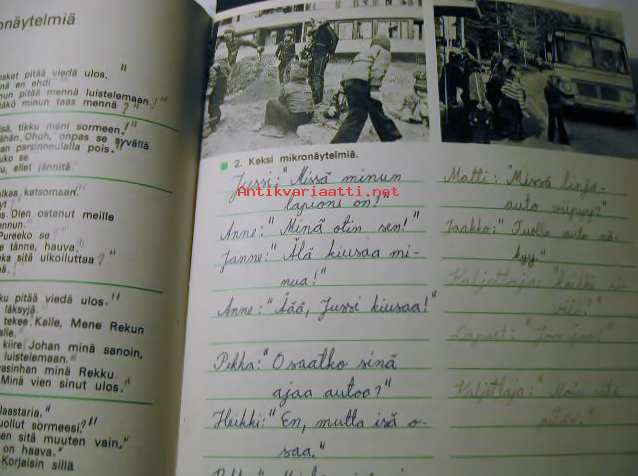 onäytelmiä
eskat pitää viedä ulos."
nä en ehdi
un pitää mennä luistelemaan."
äkö minun taas mennä?"
sä, tikku meni sormeen."
ähän. Ohoh, onpas se syvällä
an parsinneulalla pois."
uko se
u, ellet jännitä
aikaa, katsomaan.
yt!"
s. Olen ostanut meille
ennun."
Pureeko se
e tänne, hauva."
ka sitä ulkoiluttaa?"
ä."
ku pitää viedä ulos."
läksyjä.
tekee Kalle, Mene Rekun
alle.
kiire! Johan minä sanoin,
luistelemaan."
vasinhan minä Rekku
Minä vien sinut ulos."
laastaria."
uollut sormeesi?"
en sitä muuten vain."
on haava."
Korjaisin sillä
2. Keksi mikronäytelmiä.
Jussi: "Missä minun
lapioni on!"
Antikvariaatti.net
Anne: "Minä otin sen!"
Janne: "Älä kiusaa mi-
nua!"
Anne: "Ää, Jussi kiusaa!"
Pekka: "Osaatko sinä
ajaa autoo?"
Heikki: "En, mutta isä o-
saa."
Matti: "Missä linja-
auto viipyy?"
Jaakko: "Tuolla auto nä-
kyy."
Kuljettaja: "Kaikki si-
Lapset: "Joo joo!"
Kuljettaja: